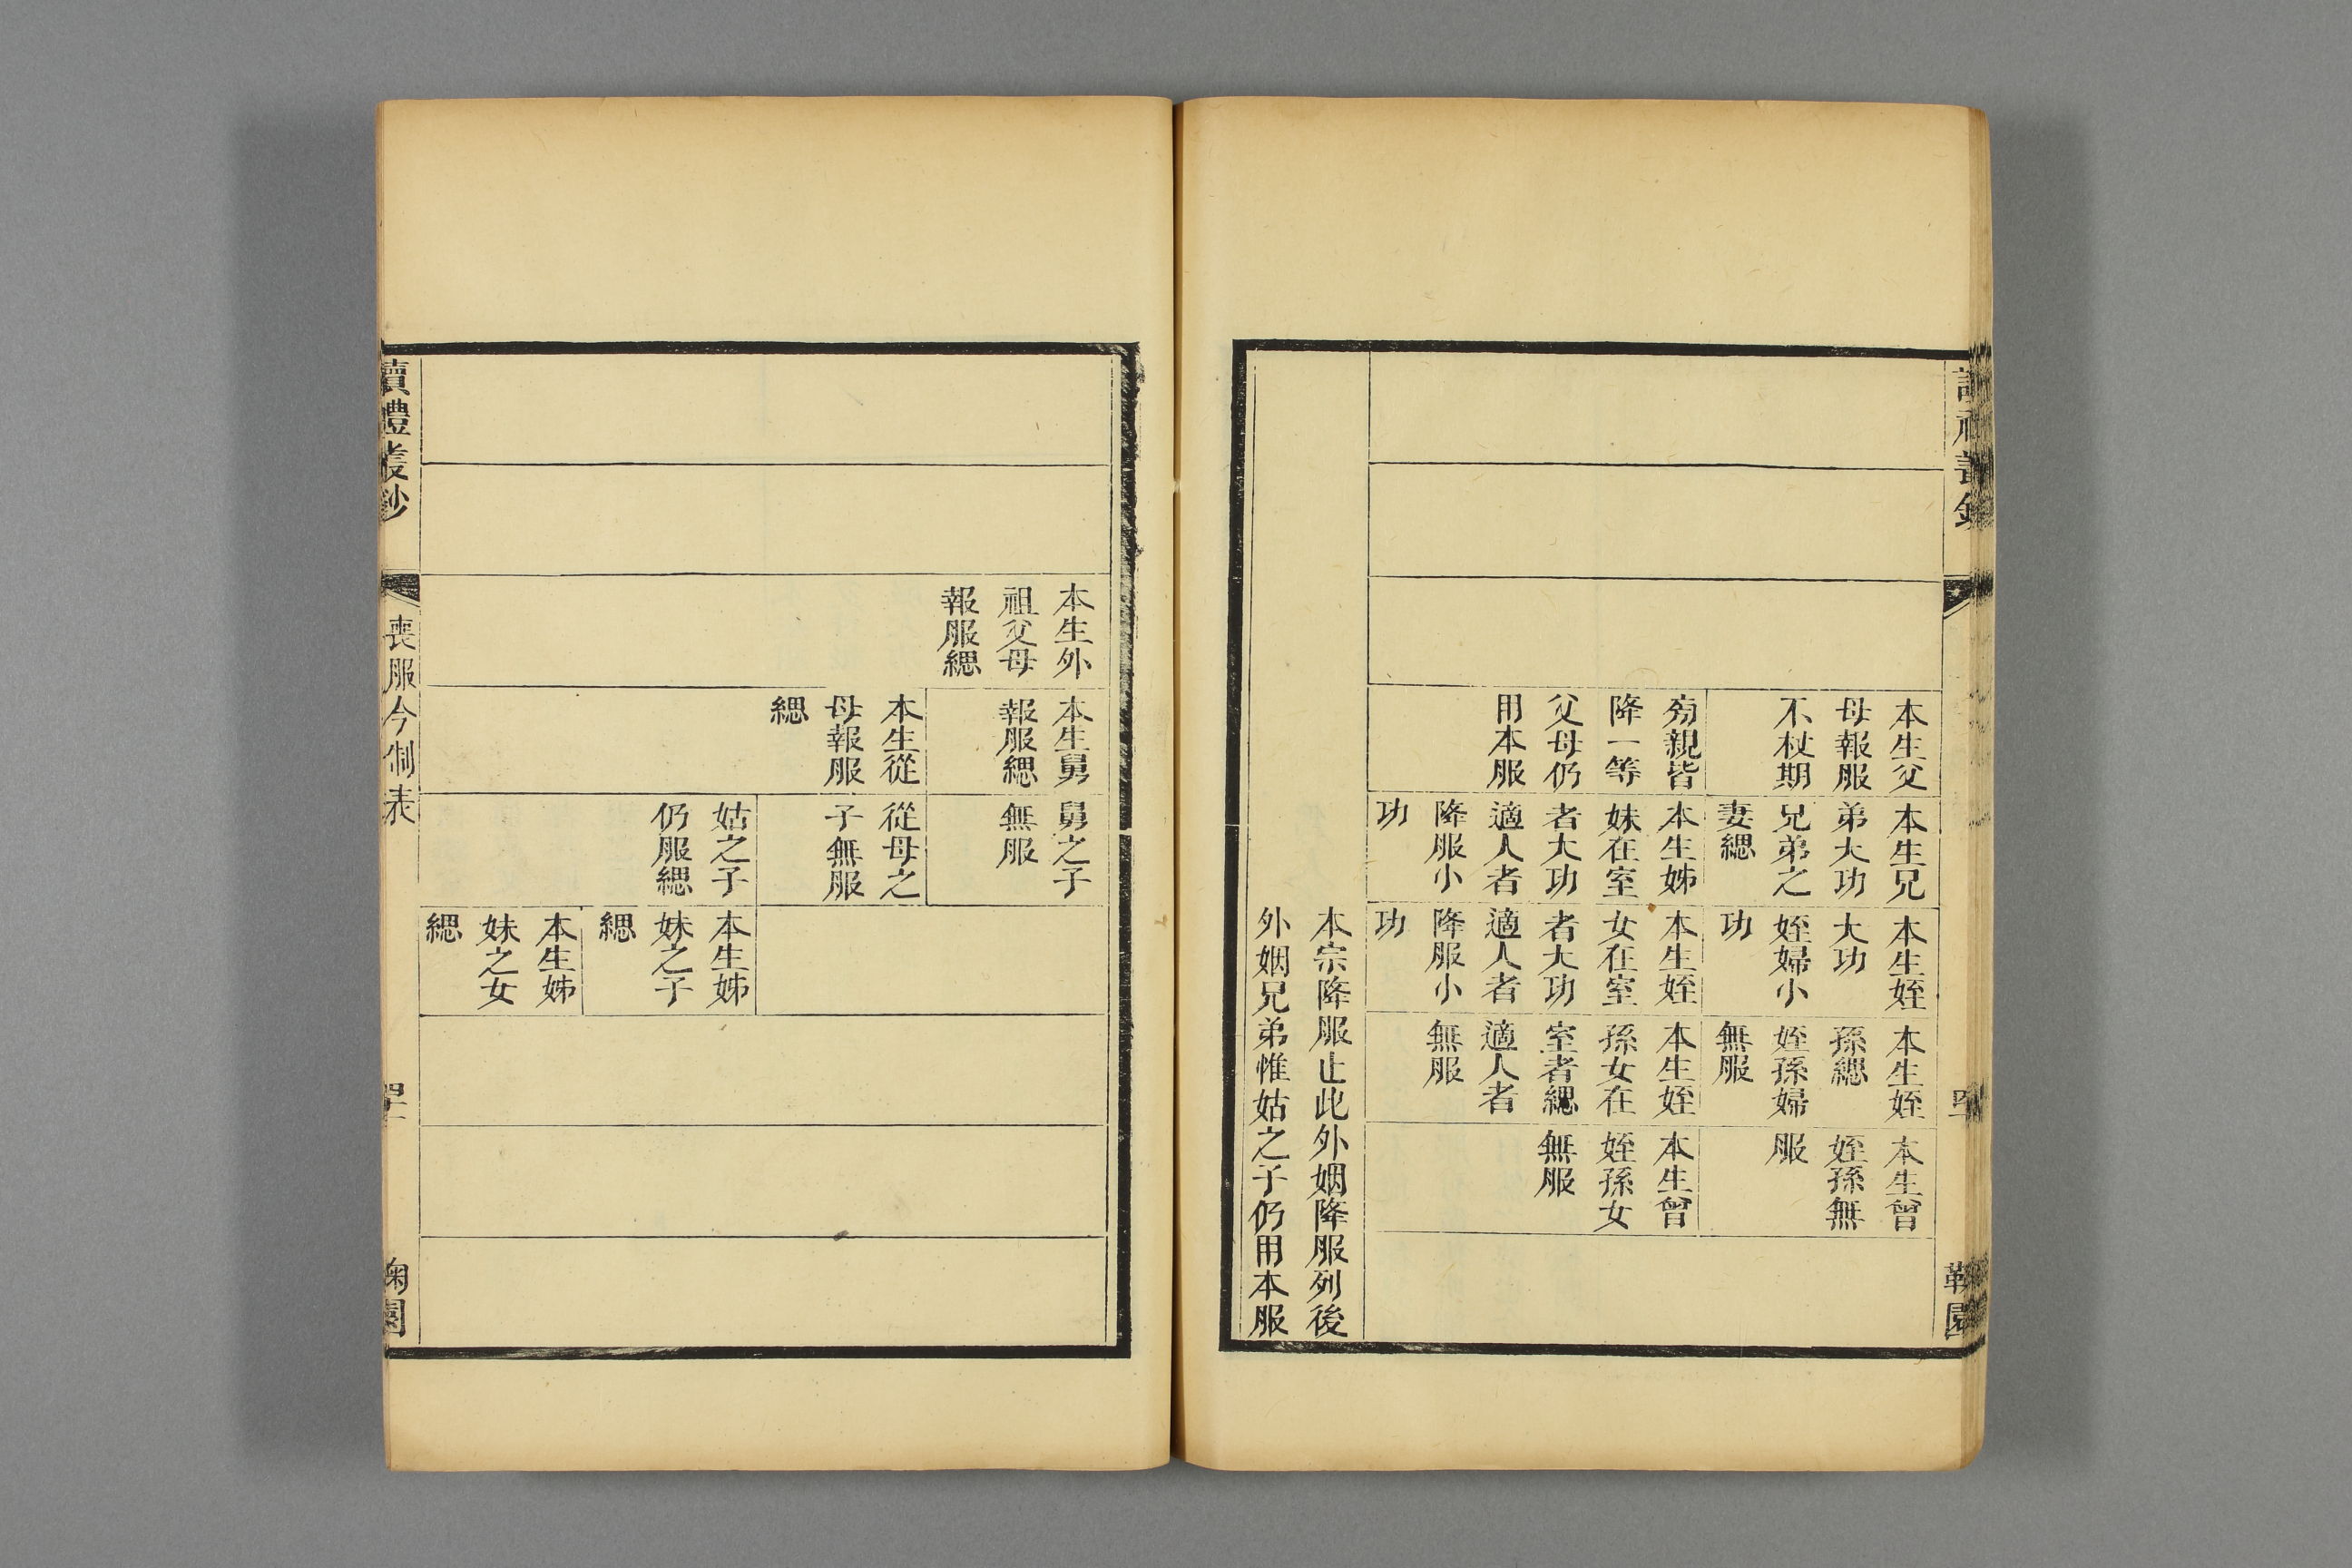 本生父
母報服
不杖期
本生兄
弟大功
兄弟之
妻緦
本生姪
大功
姪婦小
功
本生姪
孫緦
姪孫婦
無服
本生曾
姪孫無
服
旁親皆
降一等
父母仍
用本服
本生姊
妹在室
者大功
適人者
降服小
功
本生姪
女在室
者大功
適人者
降服小
功
本生姪
孫女在
室者緦
適人者
無服
本生曾
姪孫女
無服
本宗降服止此外姻降服列後
外姻兄弟惟姑之子仍用本服
本生外
祖父母
報服緦
本生舅
報服緦
舅之子
無服
本生從
母報服
緦
從母之
子無服
姑之子
仍服緦
本生姊
妹之子
緦
本生姊
妹之女
緦
讀禮叢鈔
喪服今制表
鞠園